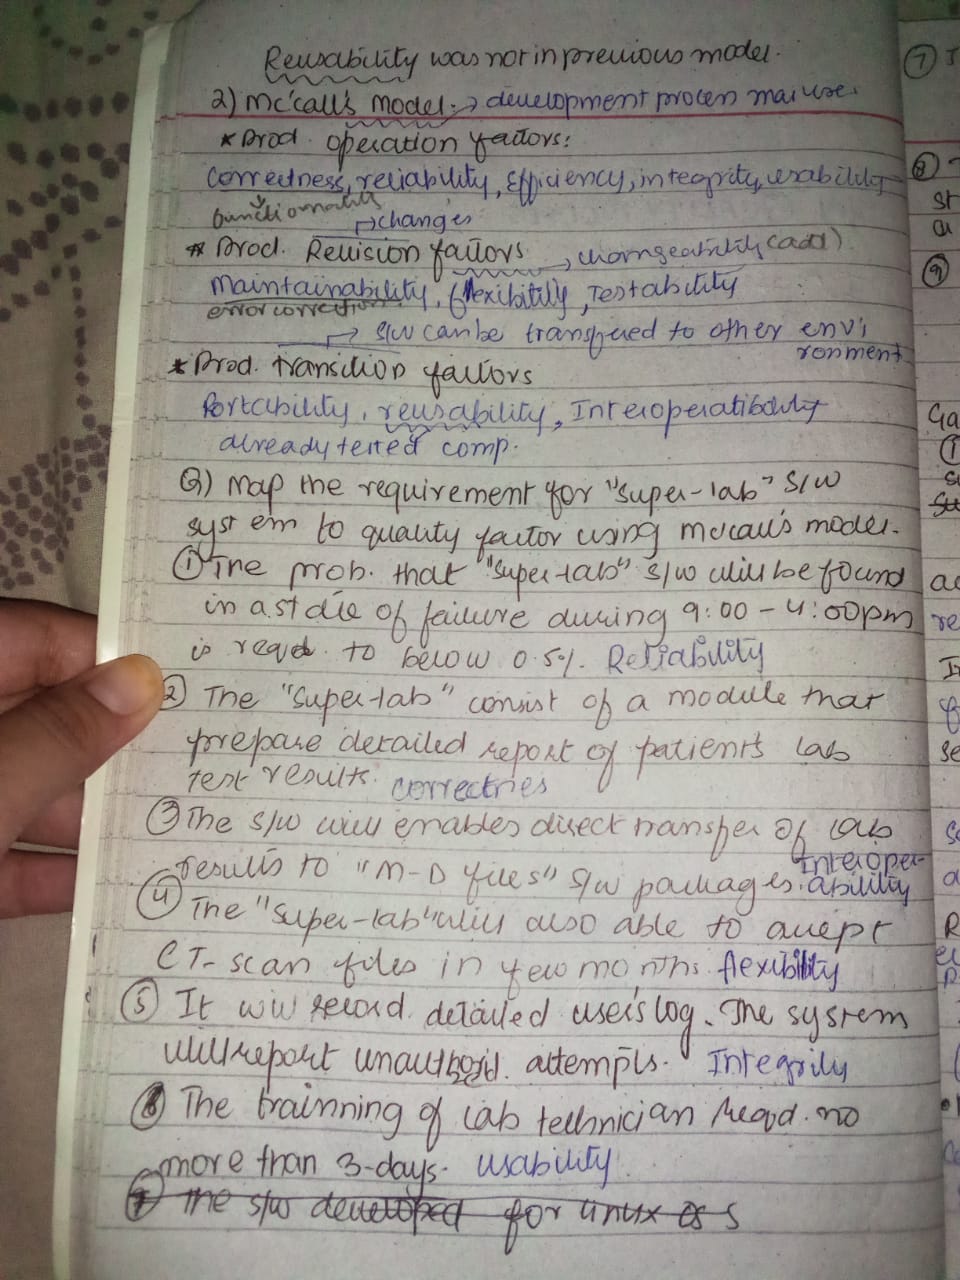 Reusability was not in previous model.
2) Mc'call's Model :→ development process mai use.
* Prod. operation factors:
correctness, reliability, Efficiency, integrity, usability
functionality
→ changes
* Prod. Revision factors → changeability (add)
Maintainability, flexibility, Testability
error correction
→ S/W can be transfered to other envi
ronment
* Prod. transition factors
Portability, reusability, Interoperatibility
already tested comp.
Q) Map the requirement for "super-lab" S/W
system to quality factor using mccall's model.
① The prob. that "Super-lab" S/W will be found
in a state of failure during 9:00 – 4:00pm
is reqd. to below 0.5%. Reliability
② The "Super-lab" consist of a module that
prepare detailed report of patient's lab
test results. correctnes
③ The S/W will enables direct transfer of lab
results to "M-D files" S/W packages. Interoper-
ability
④ The "Super-lab" will also able to accept
CT-scan files in few months. flexibility
⑤ It will record detailed user's log. The system
will report unauthorid. attempts. Integrity
⑥ The trainning of lab technician Reqd. no
more than 3-days. usability
⑦ The S/W developed for linux os s
⑦
⑧
st
⑨
Ga
①
re
se